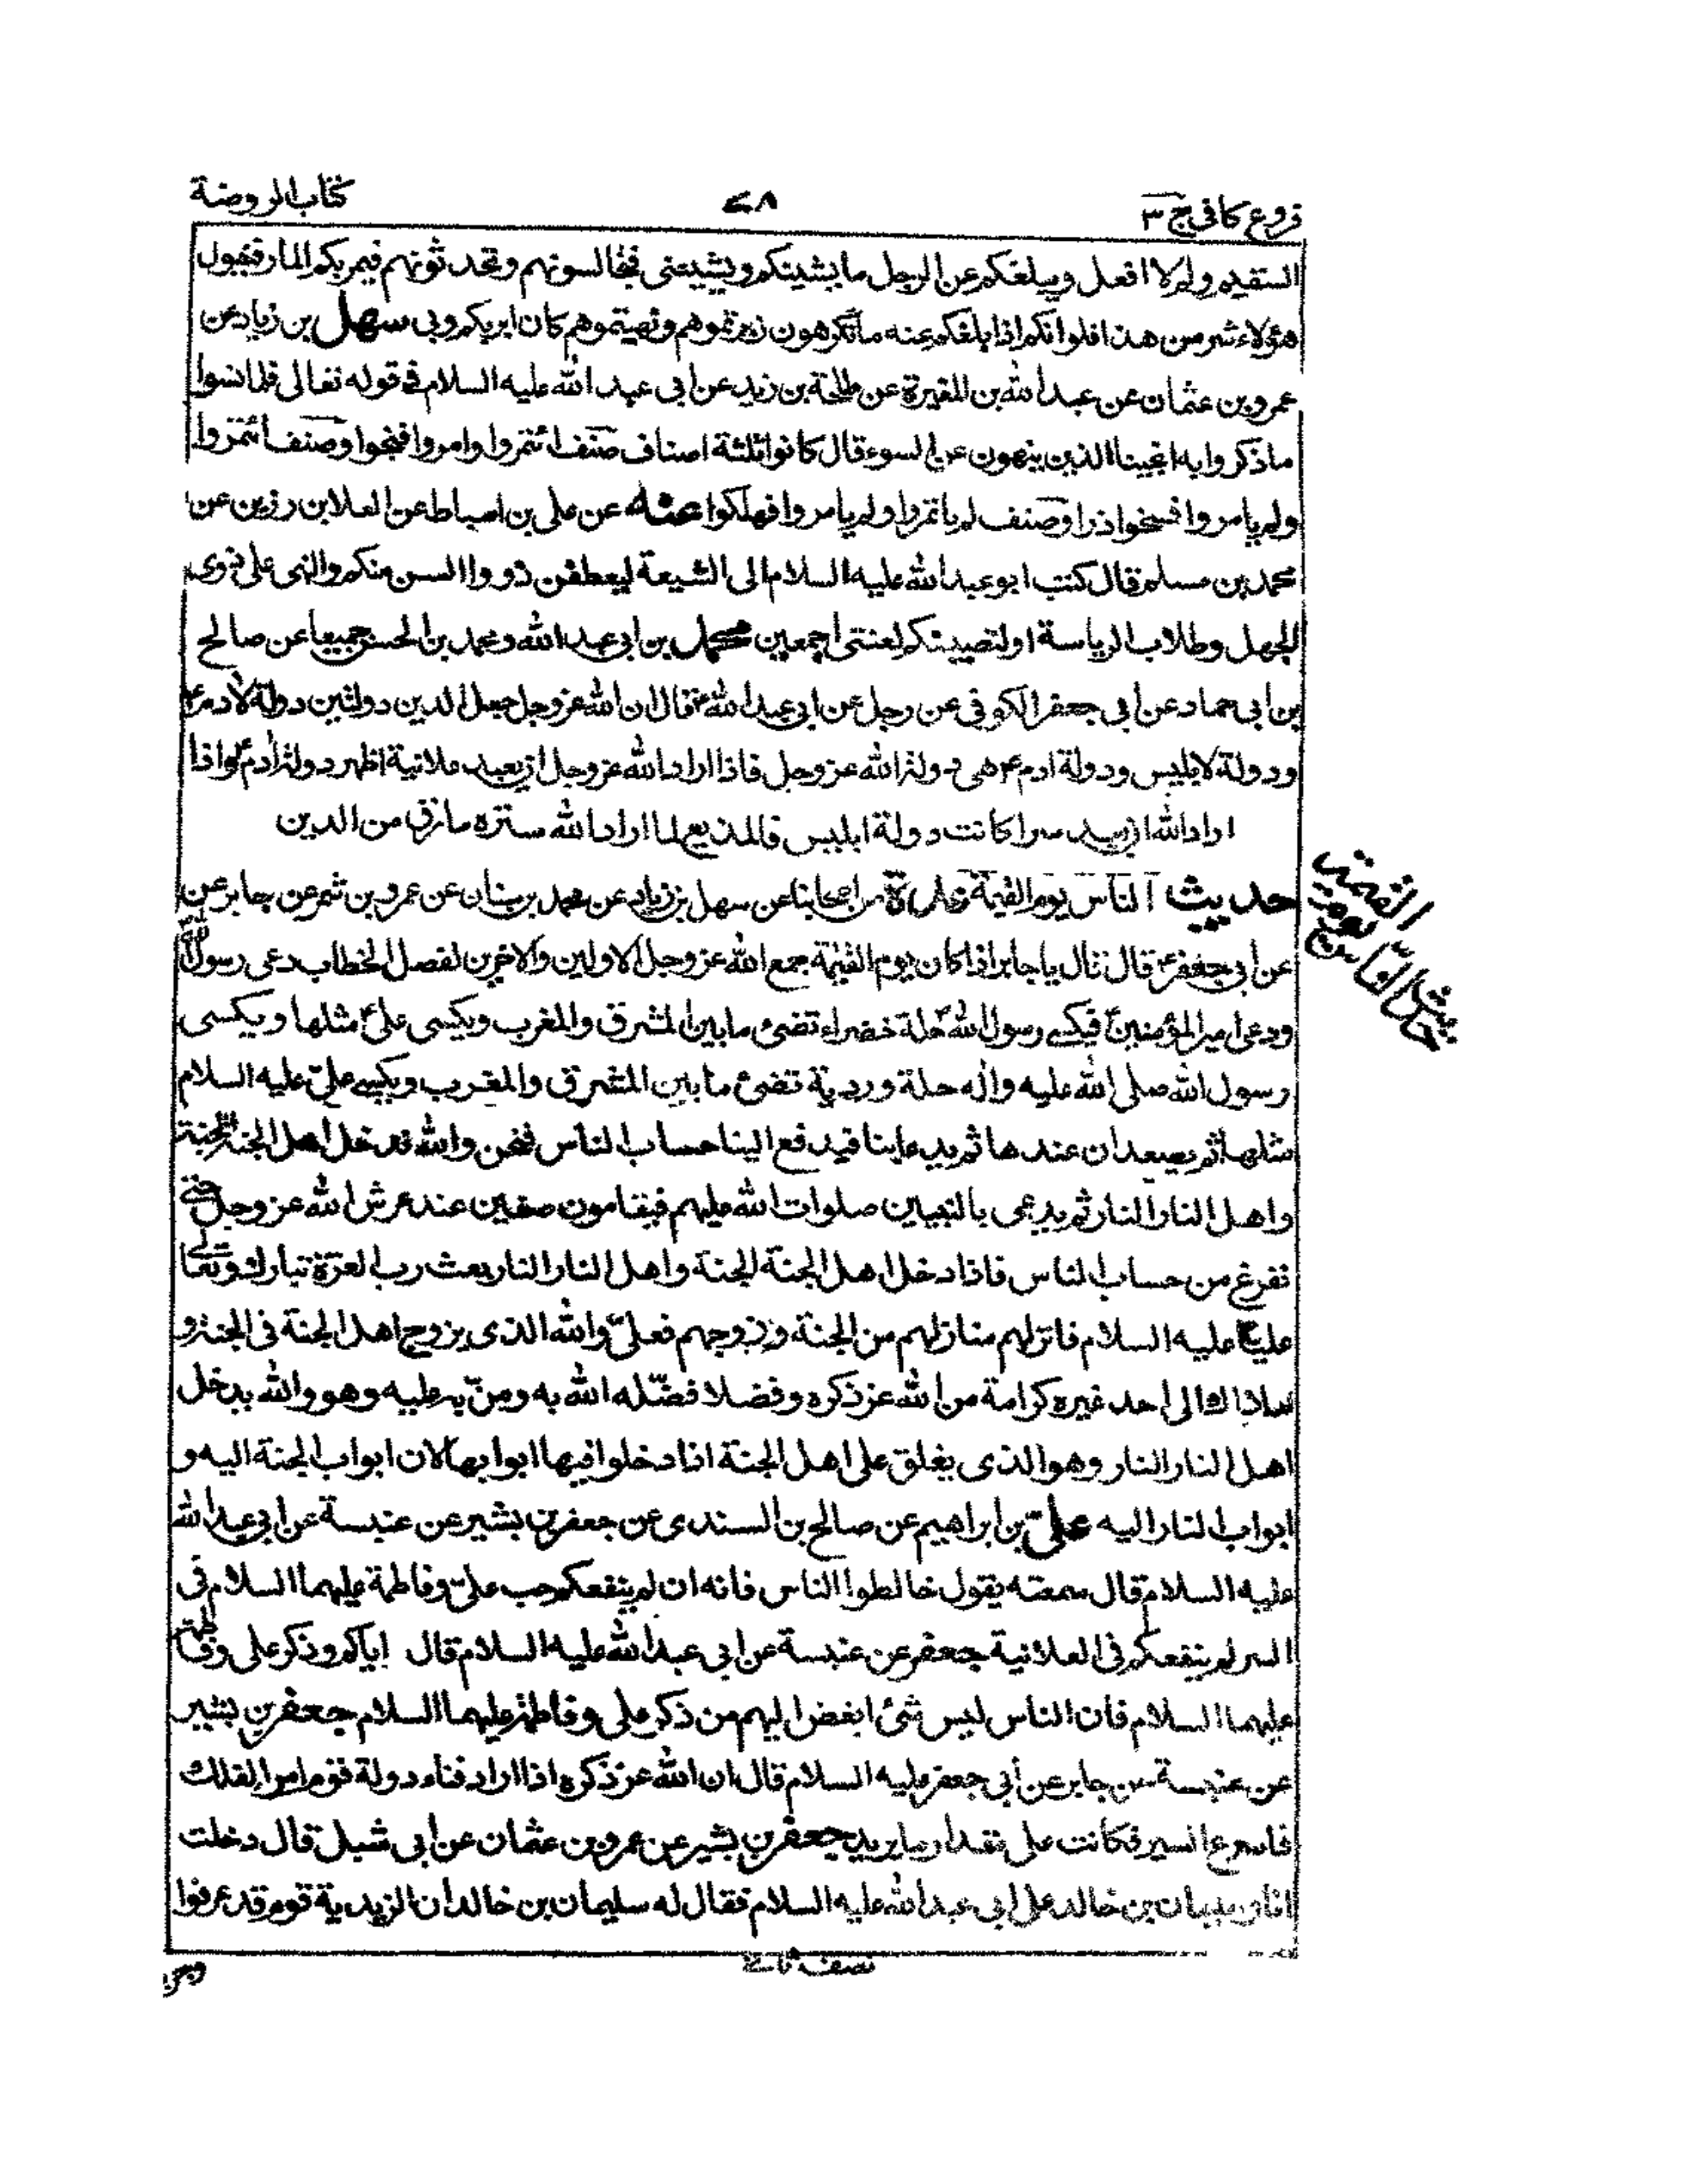 فروع کافی ج ۳
۷۸
کتاب الروضة
السقيم ولم لا افعل ويبلغكم عن الرجل ما يشينكم ويشينني فتجالسونهم وتحدثونهم فيمر بكم المار فيقول
هؤلاء شر من هذا فلو انكم اذا بلغكم عنه ما تكرهون زبرتموهم ونهيتموهم كان ابر بكم وبى سهل بن زياد عن
عمرو بن عثمان عن عبد الله بن المغيرة عن طلحة بن زيد عن ابى عبد الله عليه السلام فى قوله تعالى فلما نسوا
ما ذكروا به انجينا الذين ينهون عن السوء قال كانوا ثلثة اصناف صنف ائتمروا وامروا فنجوا وصنف ائتمروا
ولم يامروا فمسخوا ذرا وصنف لم ياتمروا ولم يامروا فهلكوا عنه عن على بن اسباط عن العلا بن رزين عن
محمد بن مسلم قال كتب ابو عبد الله عليه السلام الى الشيعة ليعطفن ذووا السن منكم والنهى على ذوى
الجهل وطلاب الرياسة او لتصيبنكم لعنتى اجمعين محمد بن ابى عبد الله ومحمد بن الحسن جميعا عن صالح
بن ابى حماد عن ابى جعفر الكوفى عن رجل عن ابى عبد الله ع قال ان الله عز وجل جعل الدين دولتين دولة لادم ع
ودولة لابليس ودولة ادم ع هى دولة الله عز وجل فاذا اراد الله عز وجل ان يعبد علانية اظهر دولة ادم ع واذا
اراد الله ان يعبد سرا كانت دولة ابليس فالمذيع لما اراد الله ستره مارق من الدين
حديث الناس يوم القيمة عدة من اصحابنا عن سهل بن زياد عن محمد بن سنان عن عمرو بن شمر عن جابر عن
عن ابى جعفر ع قال قال يا جابر اذا كان يوم القيمة جمع الله عز وجل الاولين والاخرين لفصل الخطاب دعى رسول الله
ودعى امير المؤمنين ع فيكسى رسول الله ص حلة خضراء تضئ ما بين المشرق والمغرب ويكسى على ع مثلها ويكسى
رسول الله صلى الله عليه واله حلة وردية تضئ ما بين المشرق والمغرب ويكسى على عليه السلام
مثلها ثم يصعدان عندها ثم يدعى بنا فيدفع الينا حساب الناس فنحن والله ندخل اهل الجنة الجنة
واهل النار النار ثم يدعى بالنبيين صلوات الله عليهم فيقامون صفين عند عرش الله عز وجل حتى
نفرغ من حساب الناس فاذا دخل اهل الجنة الجنة واهل النار النار بعث رب العزة تبارك وتعالى
عليا عليه السلام فانزلهم منازلهم من الجنة وزوجهم فعلى والله الذى يزوج اهل الجنة فى الجنة و
ماذاك الى احد غيره كرامة من الله عز ذكره وفضلا فضّله الله به ومنّ به عليه وهو والله يدخل
اهل النار النار وهو الذى يغلق على اهل الجنة اذا دخلوا فيها ابوابها لان ابواب الجنة اليه و
ابواب النار اليه على بن ابراهيم عن صالح بن السندى عن جعفر بن بشير عن عنبسة عن ابى عبد الله
عليه السلام قال سمعته يقول خالطوا الناس فانه ان لم ينفعكم حب على وفاطمة عليهما السلام فى
السر لم ينفعكم فى العلانية جعفر عن عنبسة عن ابى عبد الله عليه السلام قال اياكم وذكر على وفاطمة
عليهما السلام فان الناس ليس شئ ابغض اليهم من ذكر على وفاطمة عليهما السلام جعفر بن بشير
عن عنبسة عن جابر عن أبى جعفر عليه السلام قال ان الله عز ذكره اذا اراد فناء دولة قوم امر الفلك
فاسرع السير فكانت على مقدار ما يريد جعفر بن بشير عن عمرو بن عثمان عن ابى شبل قال دخلت
انا وسليمان بن خالد على ابى عبد الله عليه السلام فقال له سليمان بن خالد ان الزيدية قوم قد عرفوا
حديث الناس يوم القيمة
نصف ثانى